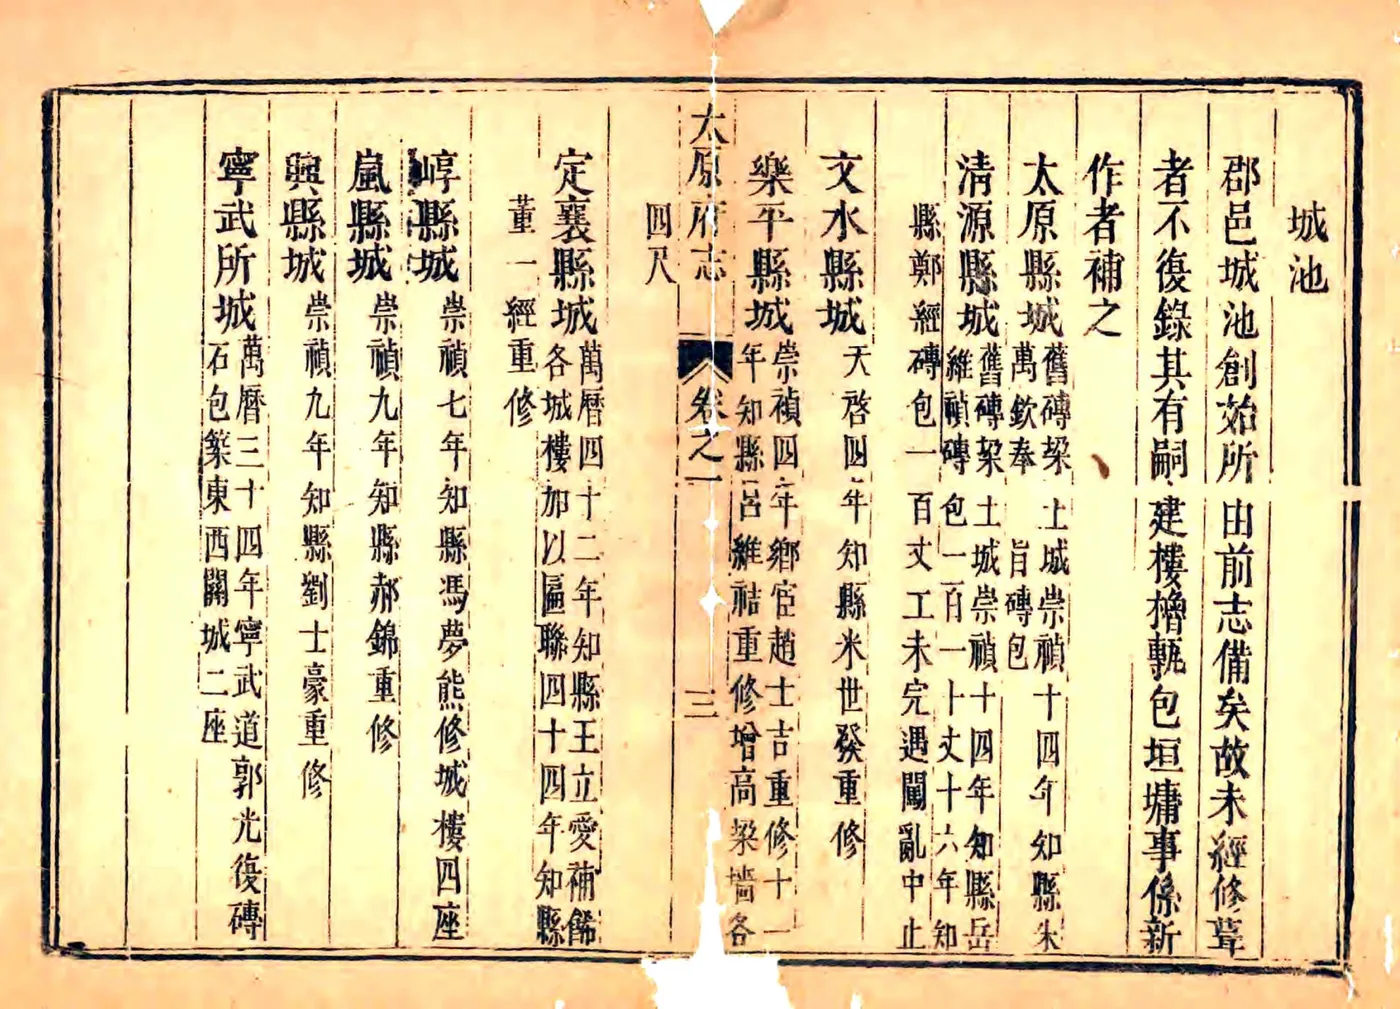 城池
郡邑城池創始所由前志備矣故未經修葺
者不復錄其有嗣建樓櫓甎包垣墉事係新
作者補之
太原縣城舊磚垜土城崇禎十四年知縣朱
萬欽奉旨磚包
清源縣城舊磚垜土城崇禎十四年知縣岳
維禎磚包一百一十丈十六年知
縣鄭經磚包一百丈工未完遇闖亂中止
文水縣城天啓四年知縣米世發重修
樂平縣城崇禎四年鄉宦趙士吉重修十一
年知縣呂維祜重修增高垜墻各
太原府志
卷之一
三
四尺
定襄縣城萬曆四十二年知縣王立愛補餙
各城樓加以匾聯四十四年知縣
董一經重修
崞縣城崇禎七年知縣馮夢熊修城樓四座
嵐縣城崇禎九年知縣郝錦重修
興縣城崇禎九年知縣劉士豪重修
寧武所城萬曆三十四年寧武道郭光復磚
石包築東西關城二座